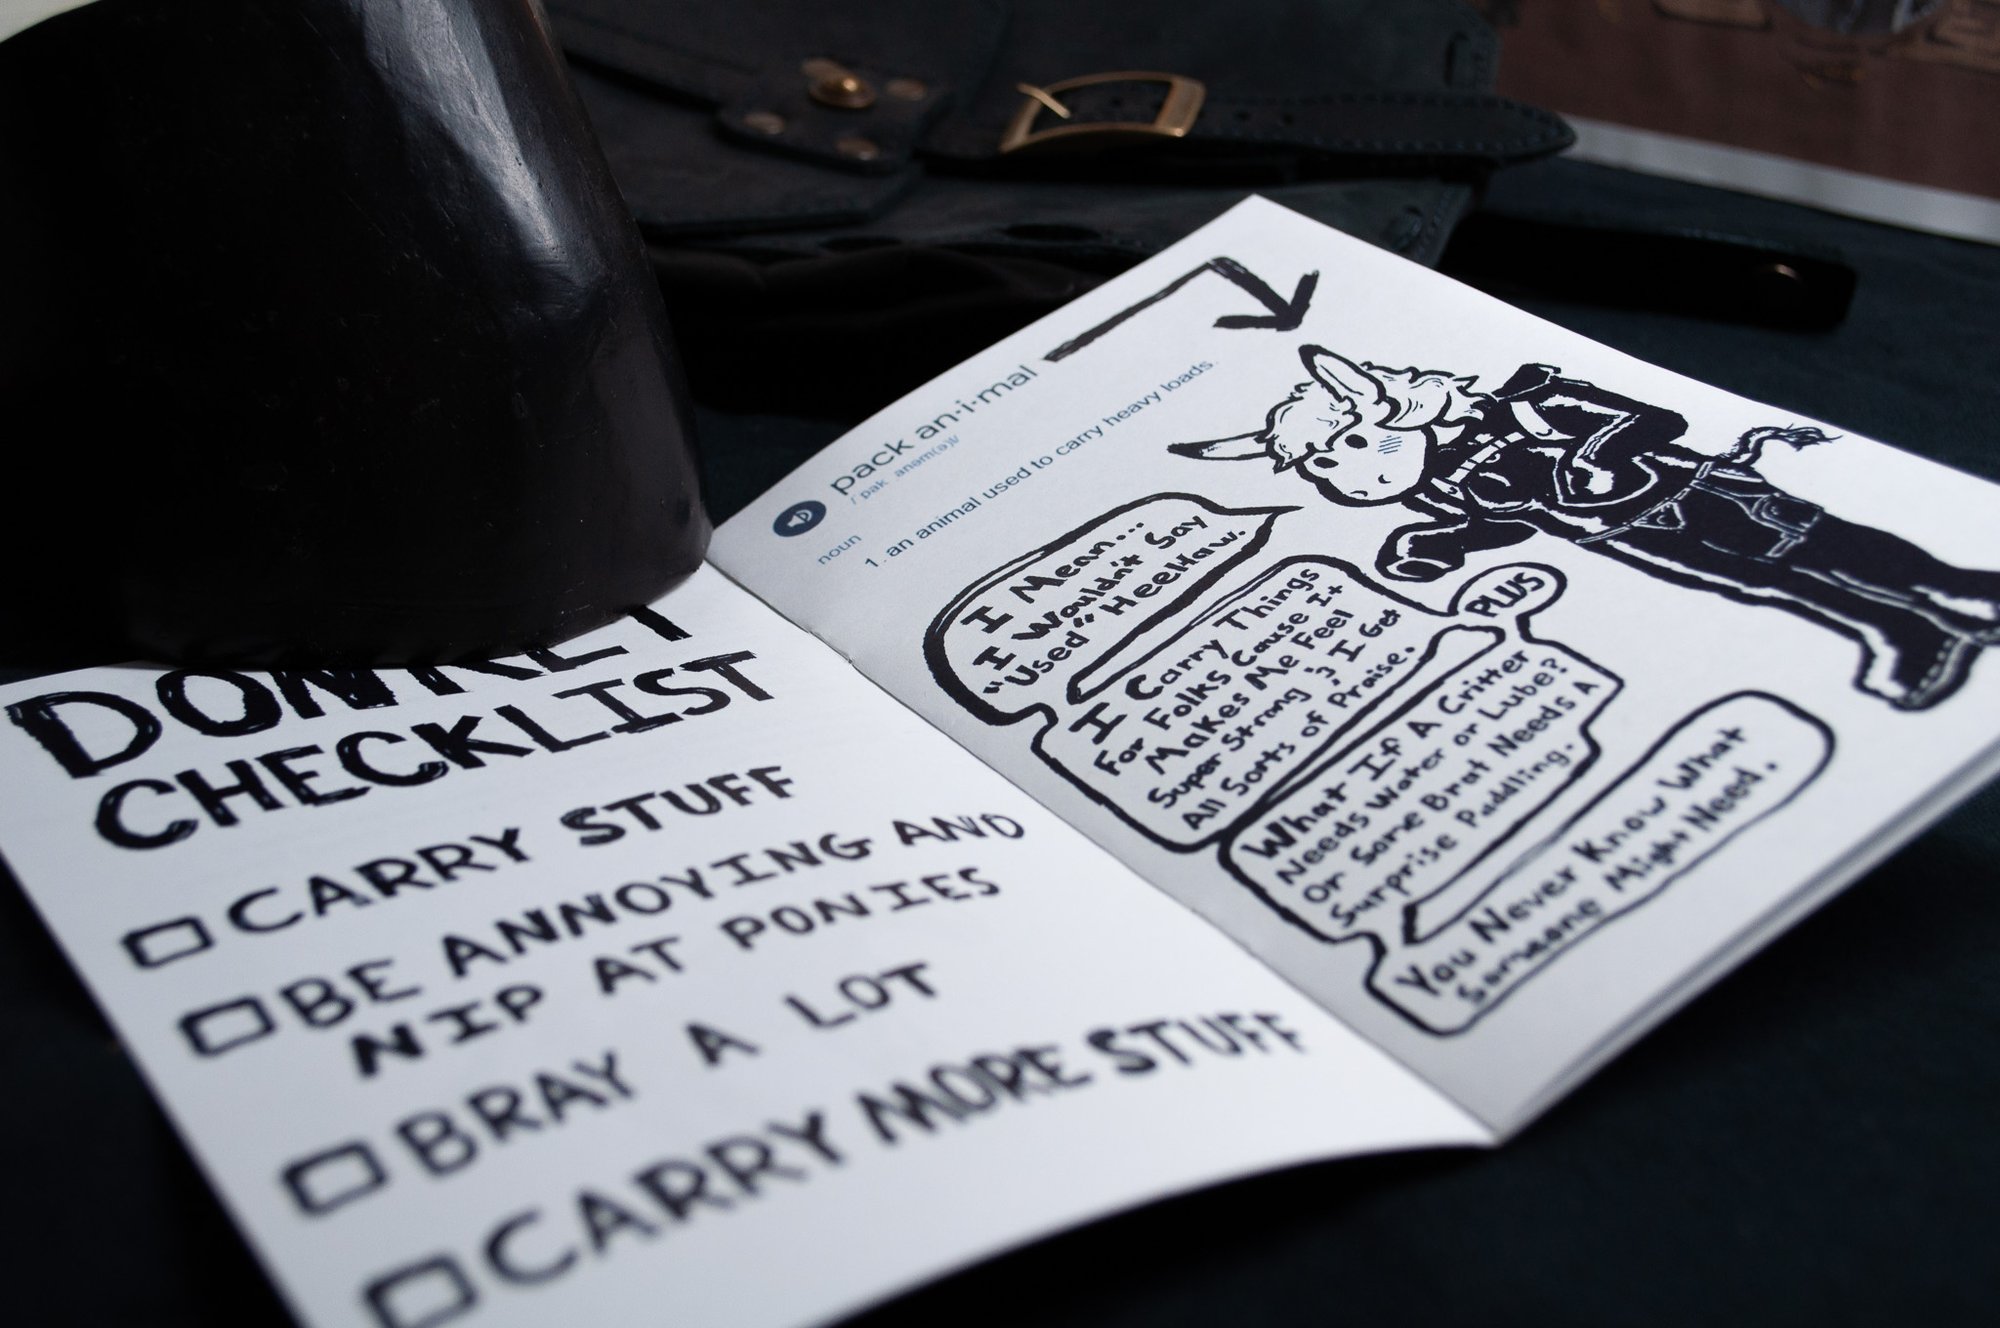 DONKEY
CHECKLIST
CARRY STUFF
BE ANNOYING AND
NIP AT PONIES
BRAY A LOT
CARRY MORE STUFF
pack an·i·mal
/ˈpak ˌanəm(ə)l/
noun
1. an animal used to carry heavy loads.
I Mean...
I Wouldn't Say
"Used" HeeHaw.
I Carry Things
For Folks Cause It
Makes Me Feel
Super Strong :3 I Get
All Sorts of Praise.
PLUS
What If A Critter
Needs Water or Lube?
Or Some Brat Needs A
Surprise Paddling.
You Never Know What
Someone Might Need.